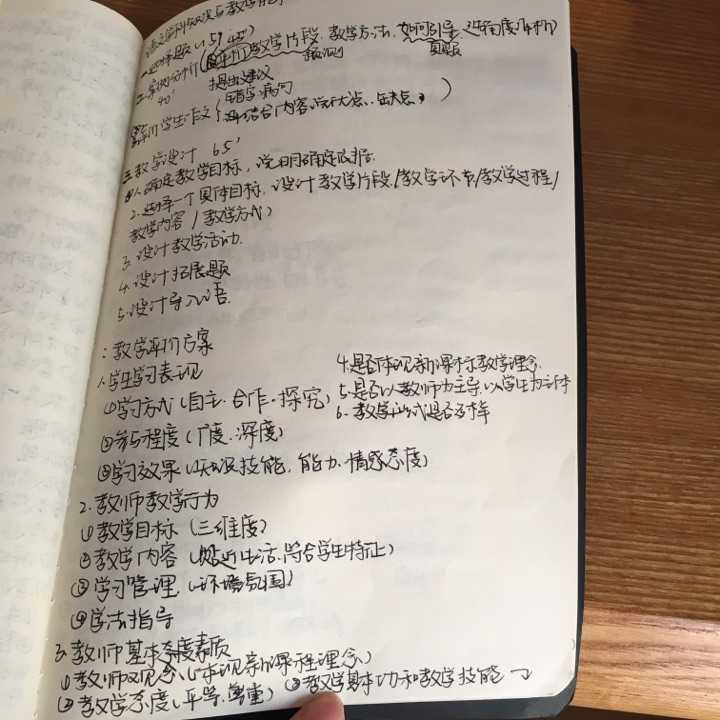 语文学科知识与教学能力
一、选择题（15') 45'
二、案例分析（评价教学片段、教学方法、如何引导
40' 提出建议
评价学生作文{错字、病句
再结合内容说优点、缺点。)
三、教学设计 65'
1.确定教学目标，说明确定依据.
2.选择一个具体目标，设计教学片段/教学环节/教学过程/
教学内容/教学方式)
3.设计教学活动.
4.设计拓展题
5.设计导入语.
:教学评价方案
1.学生学习表现
①学习方式(自主.合作.探究)
②参与程度(广度.深度)
③学习效果(知识技能.能力.情感态度)
4.是否体现新课标教学理念.
5.是否以教师为主导,以学生为主体
6.教学方式是否多样
2.教师教学行为
①教学目标(三维度)
②教学内容(贴近生活.符合学生特征)
③学习管理.(环境氛围)
④学法指导
3.教师基本态度素质
①教师观念(体现新课程理念)
②教学态度(平等.尊重) ③教学基本功和教学技能